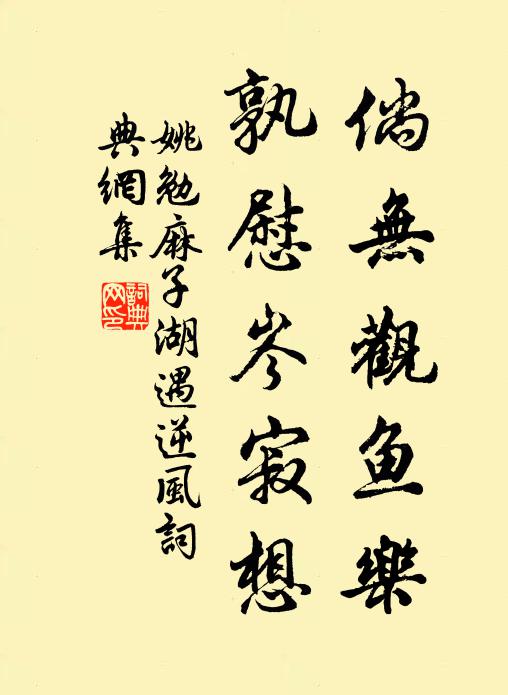 倘無觀鱼樂
孰慰岑寂想
姚勉麻子湖遇逆風詞
典網集
詞典
网印